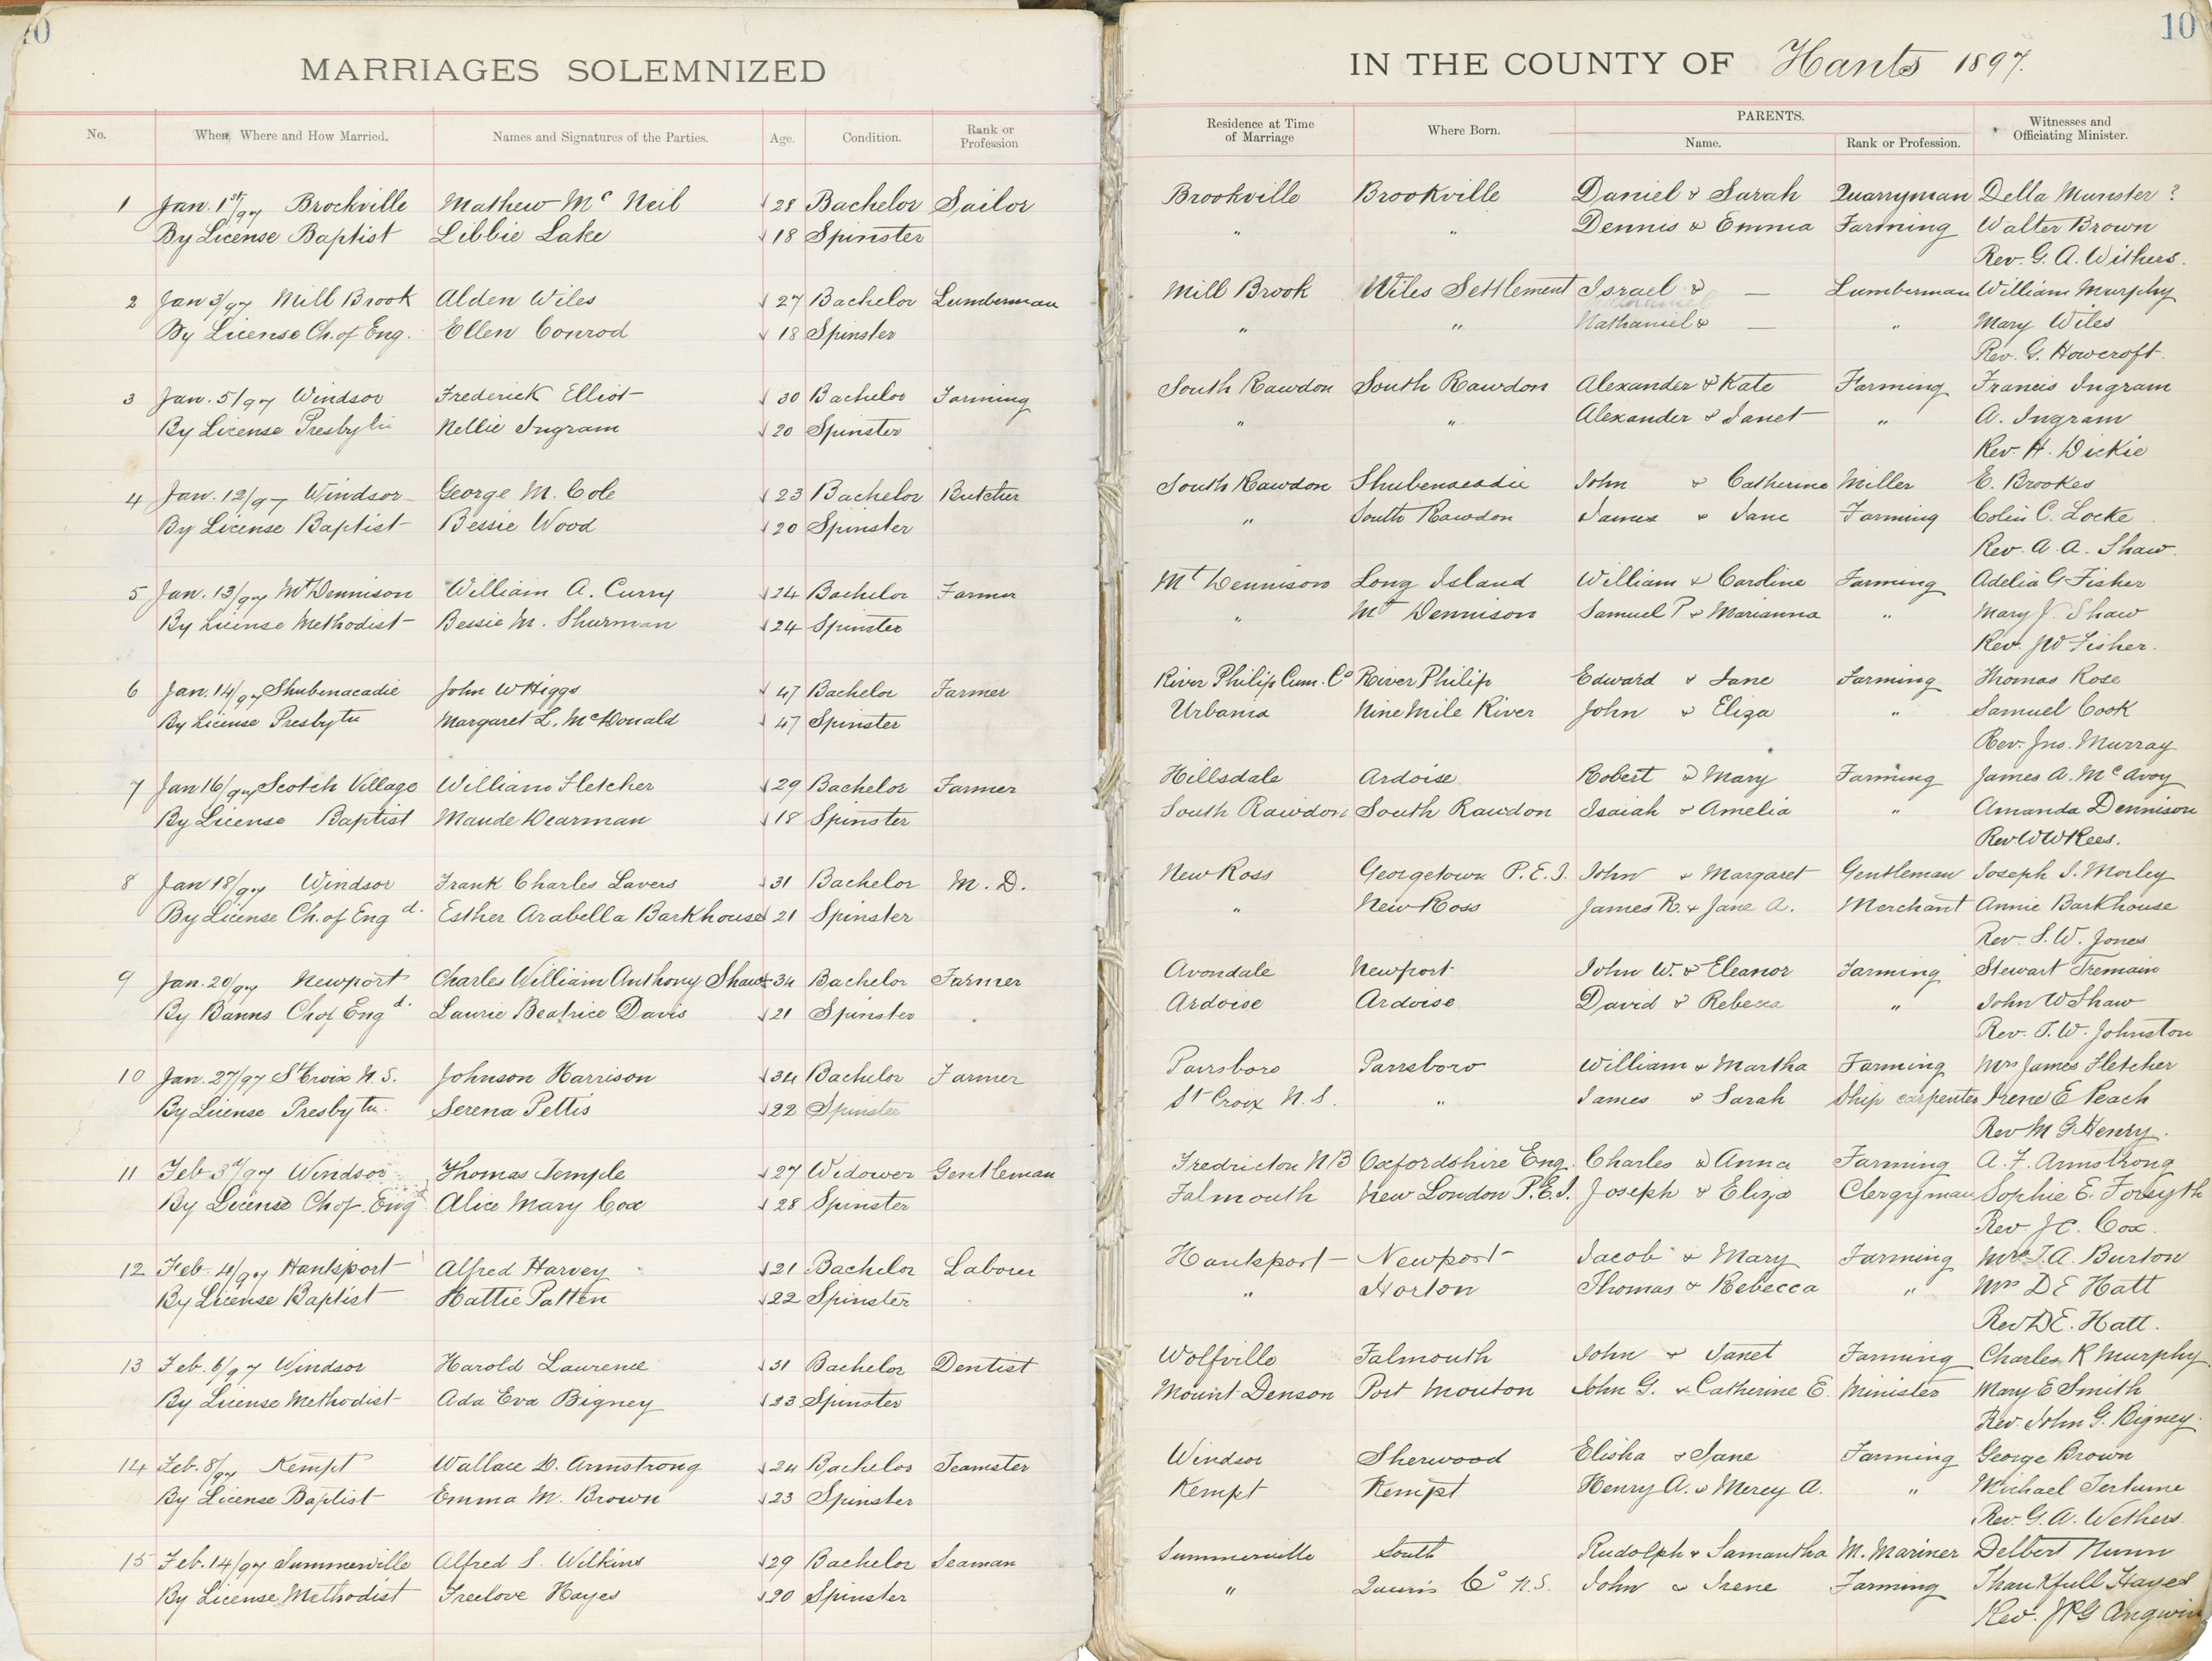 10
MARRIAGES SOLEMNIZED
No. When, Where and How Married. Names and Signatures of the Parties. Age. Condition. Rank or Profession
1 Jan. 1st/97 Brockville Mathew Mc Neil 28 Bachelor Sailor
By License Baptist Libbie Lake 18 Spinster
2 Jan 3/97 Mill Brook Alden Wiles 27 Bachelor Lumberman
By License Ch. of Eng. Ellen Conrod 18 Spinster
3 Jan. 5/97 Windsor Frederick Elliot 30 Bachelor Farming
By License Presbytn Nellie Ingram 20 Spinster
4 Jan. 12/97 Windsor George M. Cole 23 Bachelor Butcher
By License Baptist Bessie Wood 20 Spinster
5 Jan. 13/97 Mt Dennison William A. Curry 24 Bachelor Farmer
By License Methodist Bessie M. Shurman 24 Spinster
6 Jan. 14/97 Shubenacadie John W Higgs 47 Bachelor Farmer
By License Presbytn Margaret L. McDonald 47 Spinster
7 Jan 16/97 Scotch Village William Fletcher 29 Bachelor Farmer
By License Baptist Maude Dearman 18 Spinster
8 Jan 18/97 Windsor Frank Charles Lavers 31 Bachelor M. D.
By License Ch. of Engd. Esther Arabella Barkhouse 21 Spinster
9 Jan. 20/97 Newport Charles William Anthony Shaw 34 Bachelor Farmer
By Banns Ch of Engd. Laurie Beatrice Davis 21 Spinster
10 Jan. 27/97 St Croix N. S. Johnson Harrison 34 Bachelor Farmer
By License Presbytn. Serena Pettis 22 Spinster
11 Feb 3d/97 Windsor Thomas Temple 27 Widower Gentleman
By License Ch of. Engd Alice Mary Cox 28 Spinster
12 Feb. 4/97 Hantsport Alfred Harvey 21 Bachelor Laborer
By License Baptist Hattie Patten 22 Spinster
13 Feb. 6/97 Windsor Harold Laurence 31 Bachelor Dentist
By License Methodist Ada Eva Bigney 23 Spinster
14 Feb. 8/97 Kempt Wallace D. Armstrong 24 Bachelor Teamster
By License Baptist Emma M. Brown 23 Spinster
15 Feb. 14/97 Summerville Alfred S. Wilkins 29 Bachelor Seaman
By License Methodist Freelove Hayes 20 Spinster
10
IN THE COUNTY OF Hants 1897.
Residence at Time of Marriage Where Born. PARENTS. Name. Rank or Profession. Witnesses and Officiating Minister.
Brookville Brookville Daniel & Sarah Quarryman Della Munster ?
" " Dennis & Emma Farming Walter Brown
Rev. G. A. Withers.
Mill Brook Wiles Settlement Israel & — Lumberman William Murphy
" " Nathaniel & — " Mary Wiles
Rev. G. Howcroft.
South Rawdon South Rawdon Alexander & Kate Farming Francis Ingram
" " Alexander & Janet " A. Ingram
Rev. H. Dickie
South Rawdon Shubenacadie John & Catherine Miller E. Brookes
" South Rawdon James & Jane Farming Colin C. Locke
Rev. A. A. Shaw.
Mt Dennison Long Island William & Caroline Farming Adelia G Fisher
" Mt Dennison Samuel P & Marianna " Mary J. Shaw
Rev. J W Fisher.
River Philip Cum. Co River Philip Edward & Jane Farming Thomas Rose
Urbania Nine Mile River John & Eliza " Samuel Cook
Rev. Jno. Murray
Hillsdale Ardoise Robert & Mary Farming James A. McAvoy
South Rawdon South Rawdon Isaiah & Amelia " Amanda Dennison
Rev W W Rees.
New Ross Georgetown P. E. I. John & Margaret Gentleman Joseph S. Morley
" New Ross James R. & Jane A. Merchant Annie Barkhouse
Rev. S. W. Jones
Avondale Newport John W. & Eleanor Farming Stewart Tremain
Ardoise Ardoise David & Rebecca " John W Shaw
Rev. T. W. Johnston
Parrsboro Parrsboro William & Martha Farming Mrs James Fletcher
St Croix N. S. " James & Sarah Ship carpenter Irene E Peach
Rev M G Henry.
Fredricton N B Oxfordshire Eng. Charles & Anna Farming A. F. Armstrong
Falmouth New London P. E. I. Joseph & Eliza Clergyman Sophie E. Forsyth
Rev. J C. Cox.
Hantsport Newport Jacob & Mary Farming Mrs T. A. Burton
" Horton Thomas & Rebecca " Mrs D E Hatt
Rev D E. Hatt.
Wolfville Falmouth John & Janet Farming Charles R Murphy.
Mount Denson Port Mouton John G. & Catherine E. Minister Mary E Smith
Rev. John G. Bigney.
Windsor Sherwood Elisha & Jane Farming George Brown
Kempt Kempt Henry A. & Mercy A. " Michael
Rev. G. A. Wethers.
Summerville South Rudolph & Samantha M. Mariner Delbert Nunn
" Co N. S. John & Irene Farming Thankfull Hayes
Rev. J P G Angwin